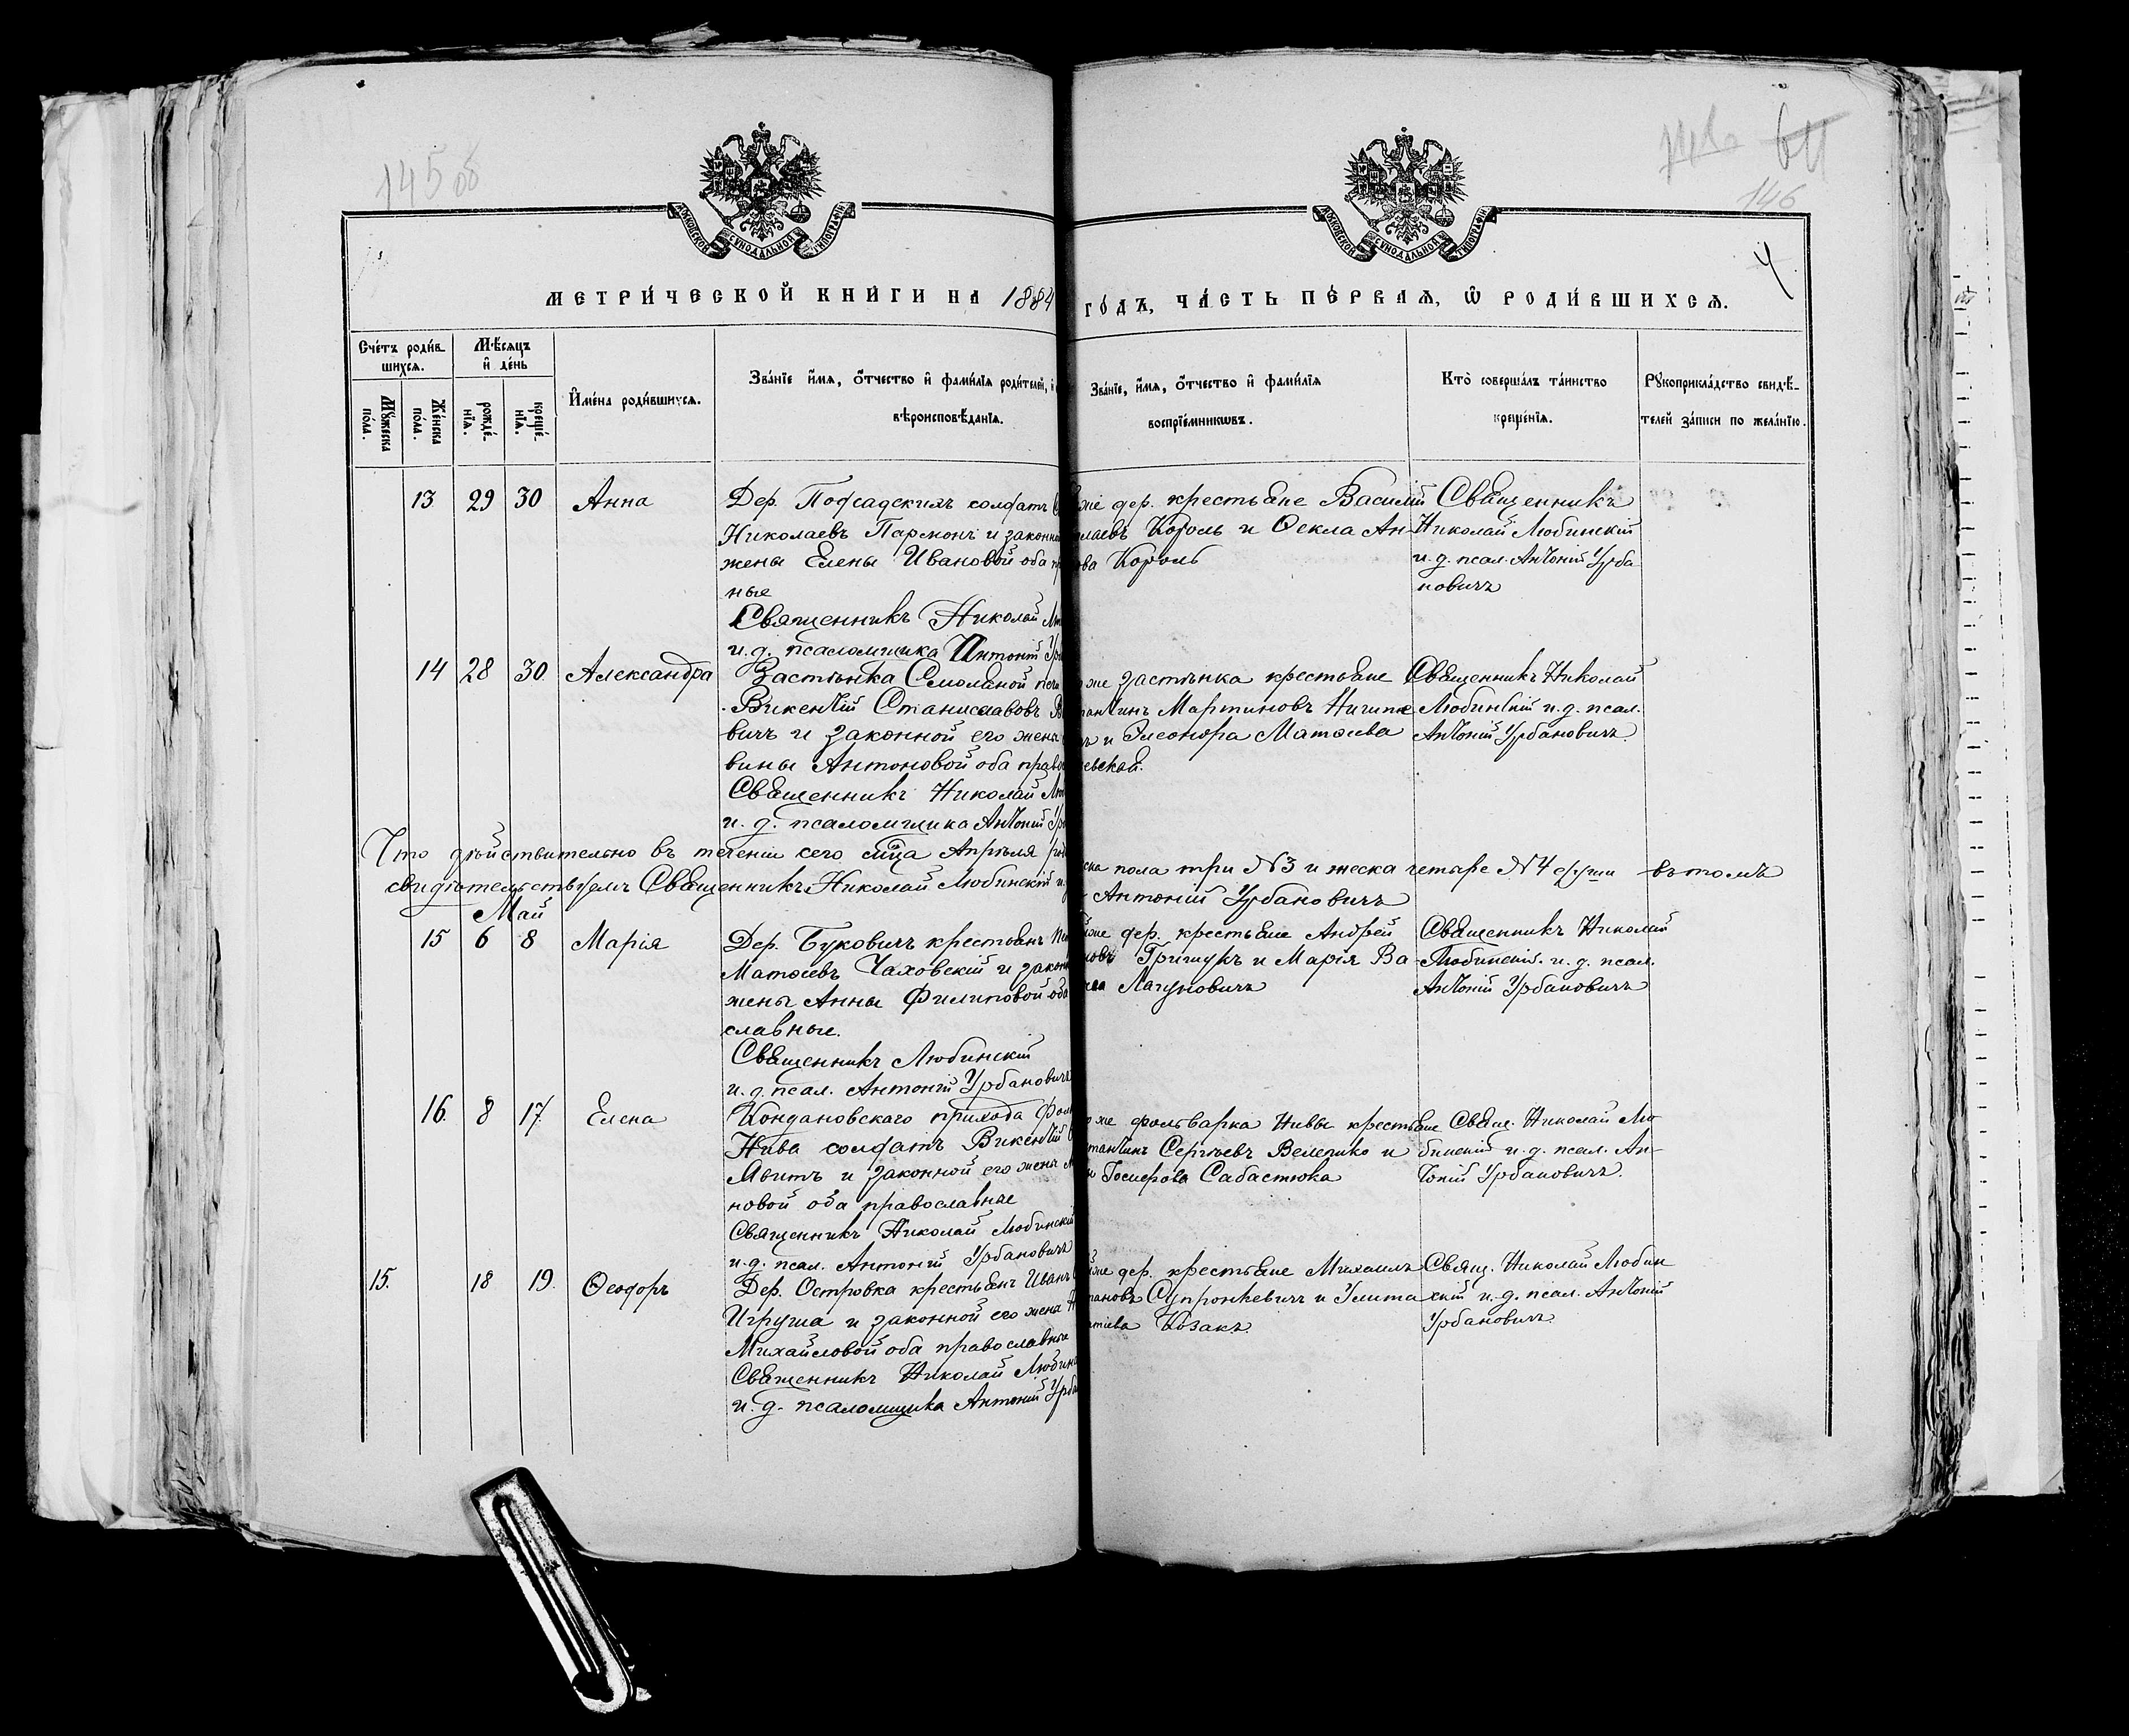 145 об
146
4
МОСКОВСКОЙ СѴНОДАЛЬНОЙ ТИПОГРАФІИ
МОСКОВСКОЙ СѴНОДАЛЬНОЙ ТИПОГРАФІИ
МЕТРИ́ЧЕСКОЙ КНИ́ГИ НА 1884 ГО́ДЪ, ЧА́СТЬ ПЕ́РВАѦ, Ѡ҆ РОДИ́ВШИХСѦ.
Сче́тъ роди́в-
шихсѧ.
Мѣ́сѧцъ
и҆ де́нь
Мꙋ́жеска
по́ла.
Же́нска
по́ла.
рожде́-
нїѧ.
креще́-
нїѧ.
И҆мена̀ роди́вшихсѧ.
Зва́нїе и҆́мѧ, ѻ҆́тчество и҆ фами́лїѧ роди́телей, и҆
вѣроисповѣ́данїѧ.
Зва́нїе, и҆́мѧ, ѻ҆́тчество и҆ фами́лїѧ
воспрїе́мникѡвъ.
Кто̀ соверша́лъ та́инство
креще́нїѧ.
Рꙋкоприкла́дство свидѣ́-
телей за́писи по жела́нїю.
13 29 30 Анна
Дер. Посадскихъ солдатъ
Николаевъ Пармонъ и законной
жены Елены Ивановой оба
ные
Священникъ Николай
и. д. псаломщика Антоній
же дер. крестьяне Василій
лаевъ Король и Ѳекла Ан-
ова Король
Священникъ
Николай Любинскій
и. д. псал. Антоній Урба
новичъ
14 28 30 Александра
Застѣнка Смоляной
Викентій Станиславовъ
вичъ и законной его жены
вины Антоновой оба право
Священникъ Николай
и. д. псаломщика Антоній
же застѣнка крестьяне
тантинъ Мартиновъ
и Элеонора Матѳеева
евская.
Священникъ Николай
Любинскій и. д. псал.
Антоній Урбановичъ
Что дѣйствительно въ теченіи сего мѣсца Апрѣля
ска пола три №3 и женска четыре №4 души въ томъ
свидѣтельствуемъ Священникъ Николай Любинскій и.
Антоній Урбановичъ
Май
15 6 8 Марія
Дер. Буковичъ крестьянъ
Матѳеевъ Чаховскій и закон
жены Анны Филиповой оба
славные.
Священникъ Любинскій
и. д. псал. Антоній Урбановичъ
же дер. крестьяне Андрей
новъ Гришукъ и Марія Ва-
Лагуновичъ
Священникъ Николай
Любинскій. и. д. псал.
Антоній Урбановичъ
16. 8 17. Елена
Кондановскаго прихода Фоль
Нива солдатъ Викентій
Явитъ и законной его жены
новой оба православные
Священникъ Николай Любинскій
и. д. псал. Антоній Урбановичъ
же фольварка Нивы крестьяне
тантинъ Сергѣевъ Величко и
Іосифова Сабастюка
Свящ. Николай Лю
бинскій и. д. псал. Ан-
тоній Урбановичъ.
15. 18 19. Ѳеодоръ
Дер. Островка крестьянъ Иванъ
Игруша и законной его жена
Михайловой оба православные
Священникъ Николай Любин
и. д. псаломщика Антоній Урба
же дер. крестьяне Михаилъ
пановъ Супронкевичъ и Улита
тіева Козакъ.
Свящ. Николай Любин
скій и. д. псал. Антоній
Урбановичъ